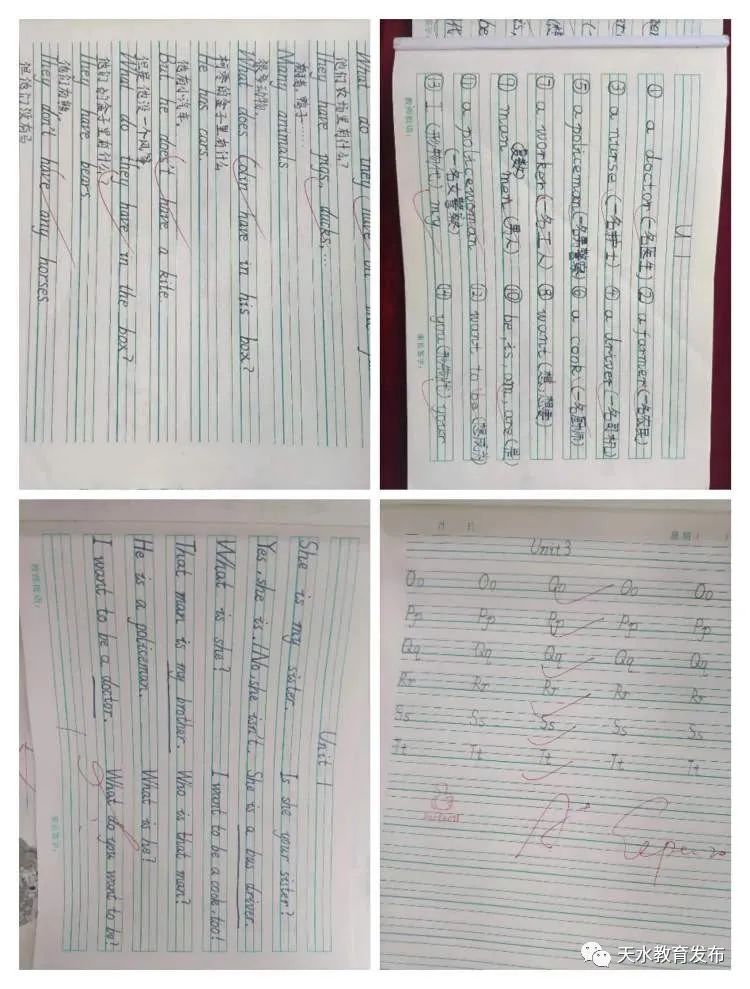 What do they have on
他们农场里有什么?
They have pigs, ducks, …
有猪, 鸭子……
Many animals
很多动物,
What does Colin have in his box?
柯林的盒子里有什么
He has cars.
他有小汽车,
But he does't have a kite.
但是他没一个风筝
What do they have in the box?
他们的盒子里有什么?
They have bears
他们有熊,
They don't have any horses.
但他们没有马
U1
① a doctor (一名医生) ② a farmer (一名农民)
③ a nurse (一名护士) ④ a driver (一名司机)
⑤ a policeman (一名男警察) ⑥ a cook (一名厨师)
⑦ a worker (一名工人) ⑧ want (想,想要)
⑨ man men (男人) (复数) ⑩ be, is, am, are (是)
⑪ a policewoman (一名女警察) ⑫ want to be (想成为)
⑬ I (形物代) my ⑭ you (形物代) your
教师批语:
家长签字:
Unit 1
She is my sister. Is she your sister?
Yes, she is. / No, she isn't. She is a bus driver.
What is she? I want to be a cook, too!
That man is my brother. Who is that man?
He is a policeman. What is he?
I want to be a doctor. What do you want to be?
教师批语:
家长签字:
月 日 星期
Unit 3
Oo Oo Oo Oo Oo
Pp Pp Pp Pp Pp
Qq Qq Qq Qq Qq
Rr Rr Rr Rr Rr
Ss Ss Ss Ss Ss
Tt Tt Tt Tt Tt
天水教育发布